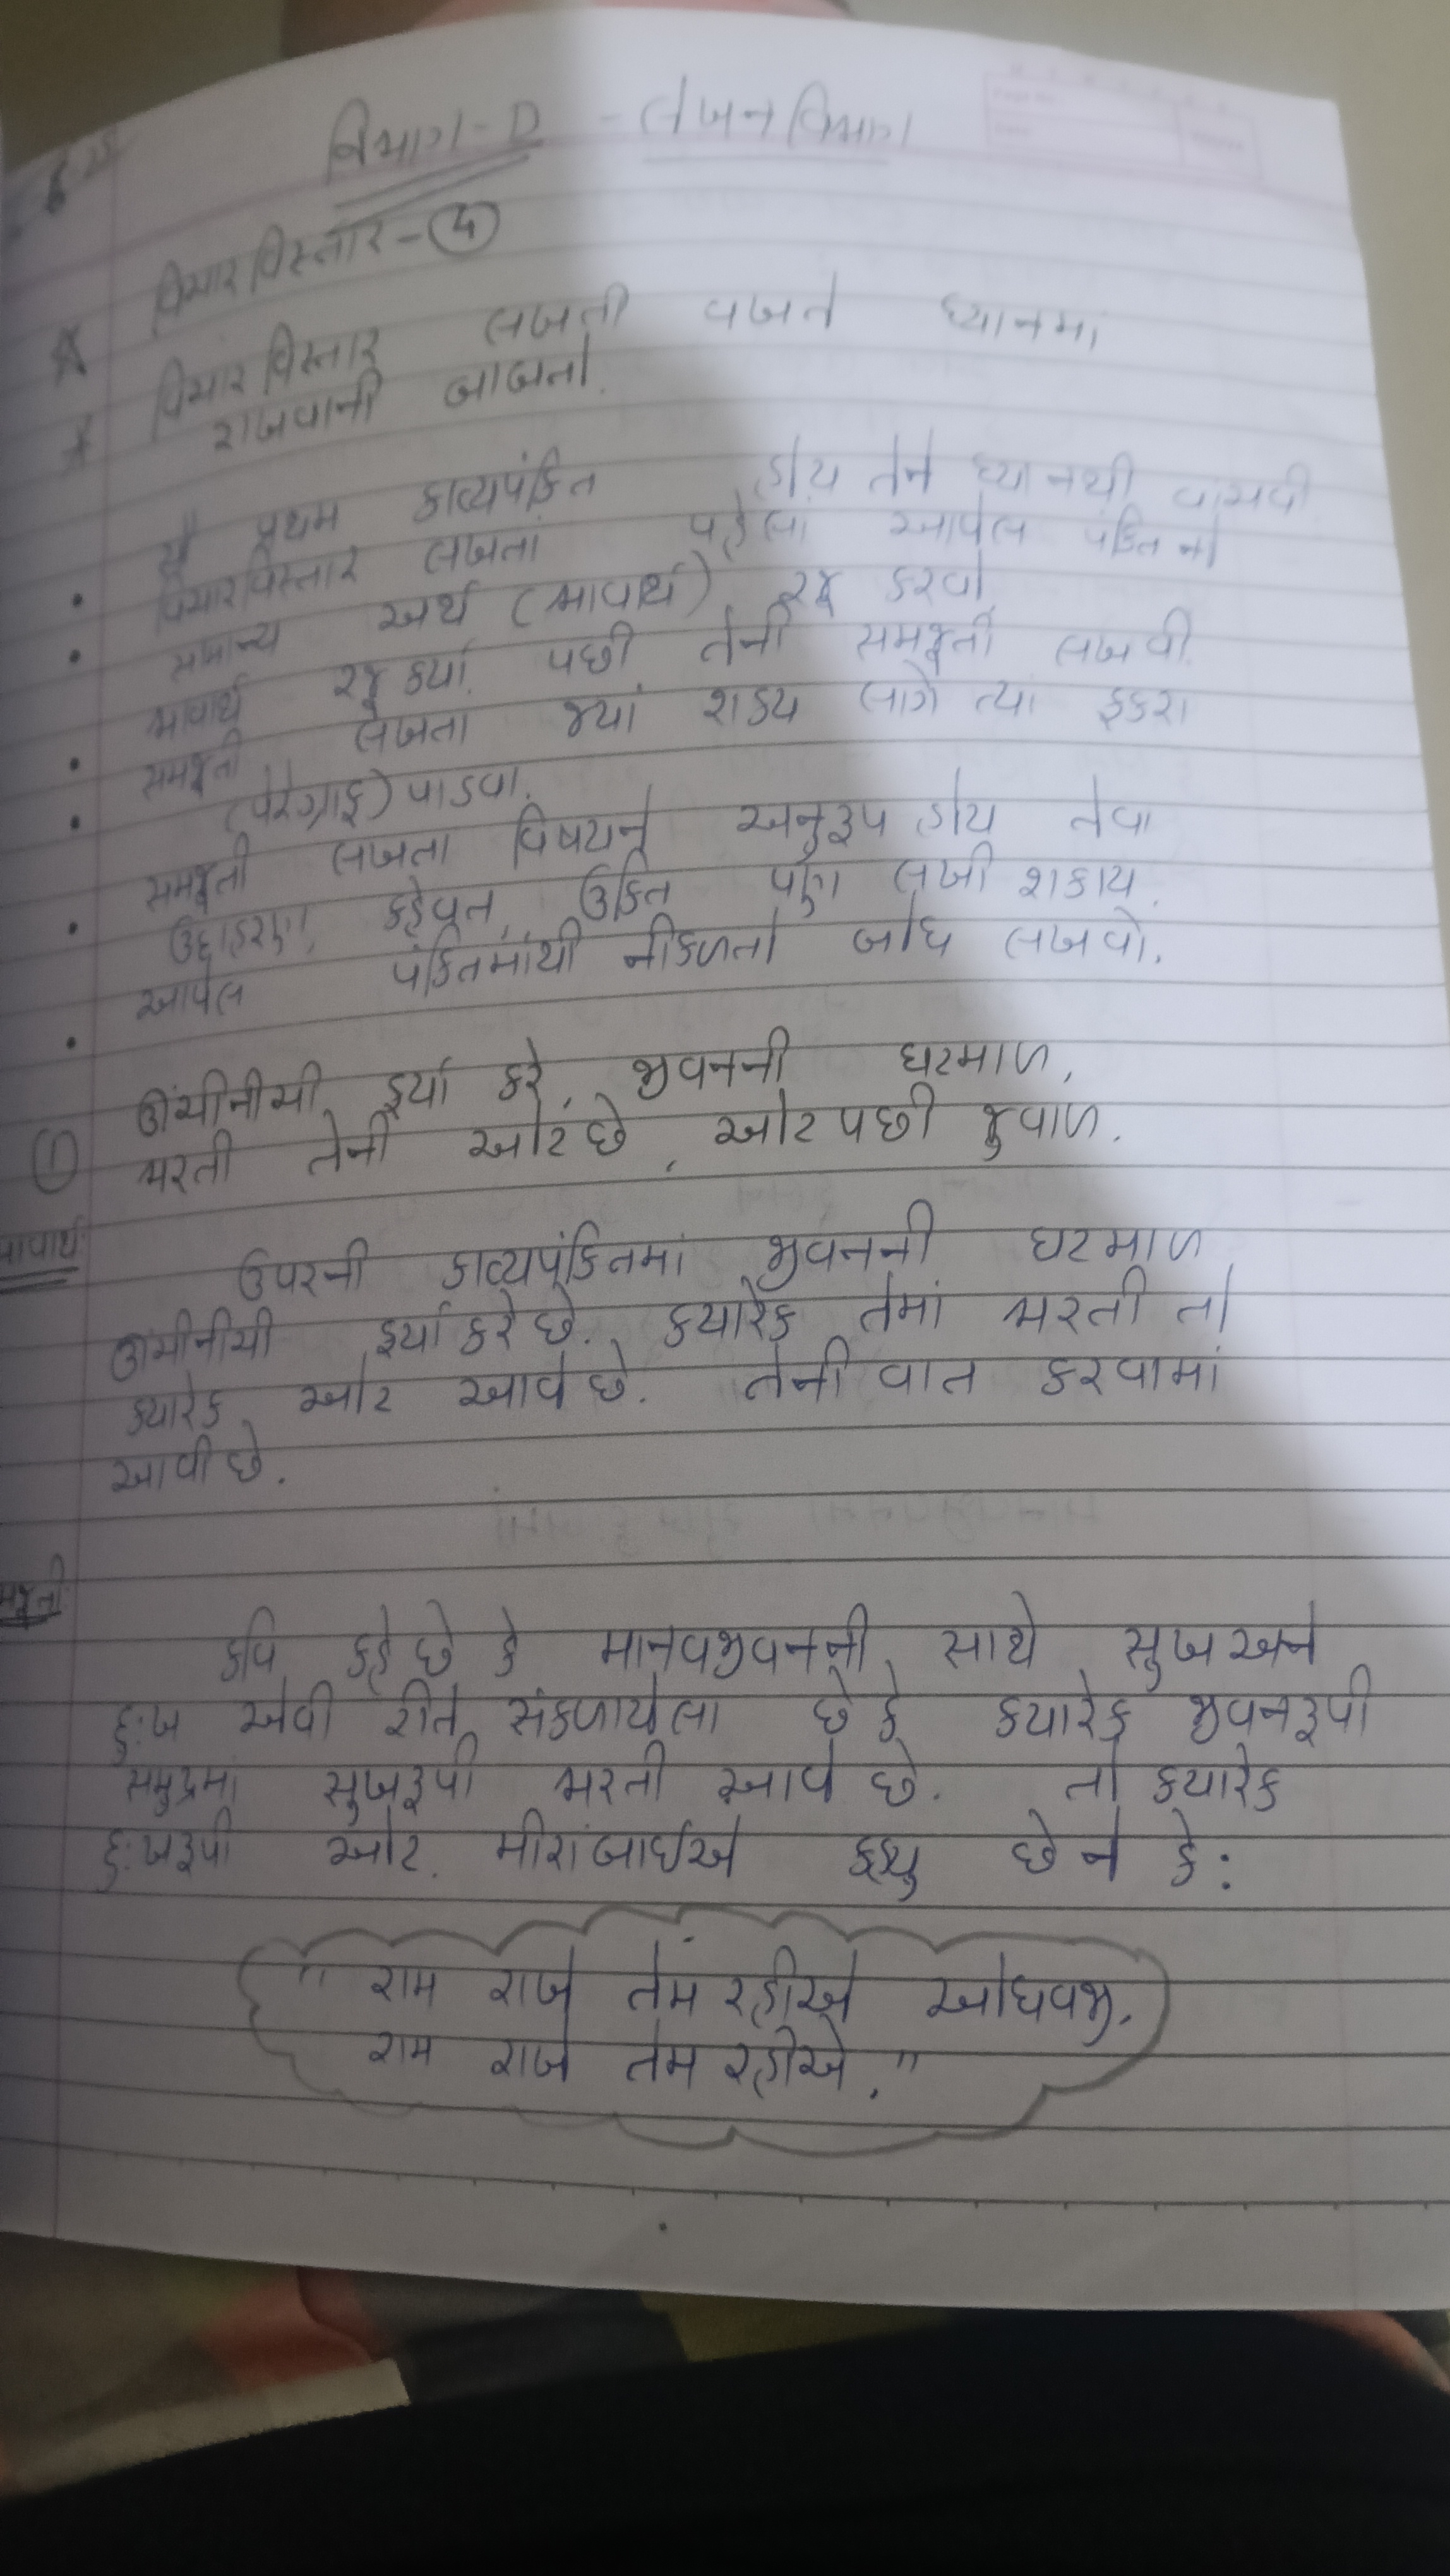 વિભાગ-D - લેખનવિભાગ
વિચારવિસ્તાર-④
વિચારવિસ્તાર લખતી વખતે ધ્યાનમાં
રાખવાની બાબતો.
સૌ પ્રથમ કાવ્યપંક્તિ હોય તેને ધ્યાનથી વાંચવી
વિચારવિસ્તાર લખતાં પહેલા આપેલ પંક્તિનો
સામાન્ય અર્થ (ભાવાર્થ) રજૂ કરવો.
ભાવાર્થ રજૂ કર્યા પછી તેની સમજૂતી લખવી.
સમજૂતી લખતા જ્યાં શક્ય લાગે ત્યાં ફકરા
(પેરેગ્રાફ) પાડવા.
સમજૂતી લખતા વિષયને અનુરૂપ હોય તેવા
ઉદાહરણ, કહેવત, ઉક્તિ પણ લખી શકાય.
આપેલ પંક્તિમાંથી નીકળતો બોધ લખવો.
① ઊંચીનીચી ફર્યા કરે, જીવનની ઘટમાળ,
ભરતી તેની ઓટ છે, ઓટ પછી જુવાળ.
ભાવાર્થ:
ઉપરની કાવ્યપંક્તિમાં જીવનની ઘટમાળ
ઊંચીનીચી ફર્યા કરે છે. ક્યારેક તેમાં ભરતી તો
ક્યારેક ઓટ આવે છે. તેની વાત કરવામાં
આવી છે.
સમજૂતી:
કવિ કહે છે કે માનવજીવનની સાથે સુખ અને
દુ:ખ એવી રીતે સંકળાયેલા છે કે ક્યારેક જીવનરૂપી
સમુદ્રમાં સુખરૂપી ભરતી આવે છે. તો ક્યારેક
દુ:ખરૂપી ઓટ. મીરાંબાઈએ કહ્યુ છે ને કે:
"રામ રાખે તેમ રહીએ ઓધવજી,
રામ રાખે તેમ રહીએ."